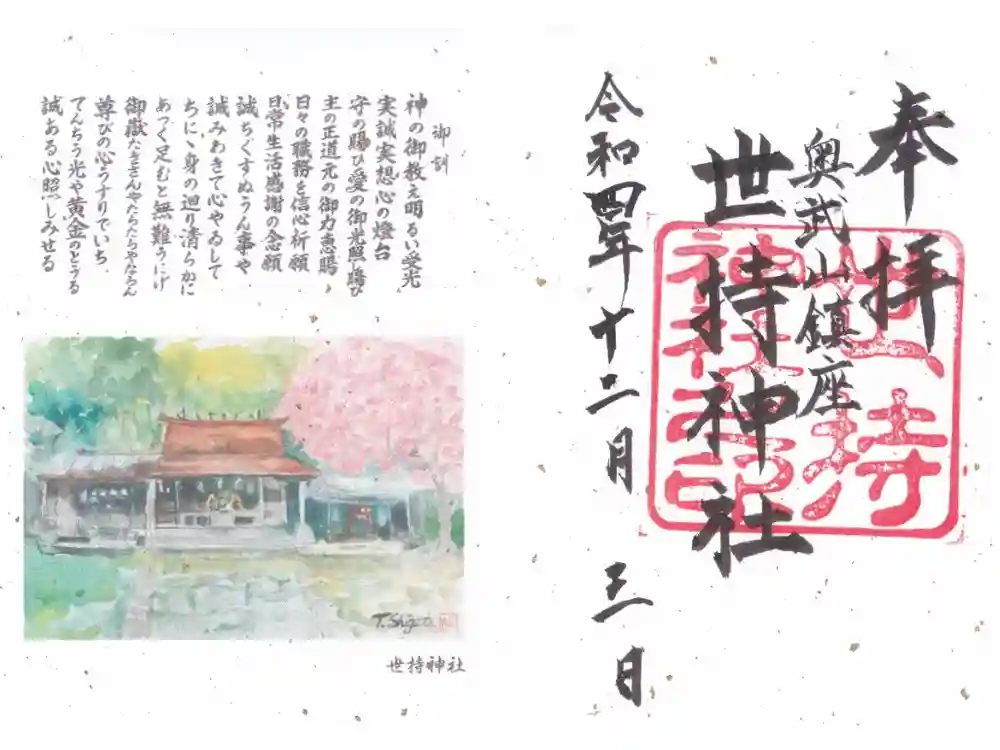 奉拝
奥武山鎮座
世持神社
世持
神社之印
令和四年十二月三日
御訓
神の御教え明るい受光
実誠実想心の燈台
守の賜ひ愛の御光照賜ひ
主の正道元の御力恵賜
日々の職務を信心祈願
日常生活感謝の念願
誠ちくすぬうん事や
誠みわきて心やゐして
ちに丶身の廻り清らかに
あつく足むと無難うにげ
御嶽たきさんやたらちやなろん
尊びの心うすりでいち
てんちう光や黄金のとうる
誠ある心照しみせる
T. Shigeta
世持神社